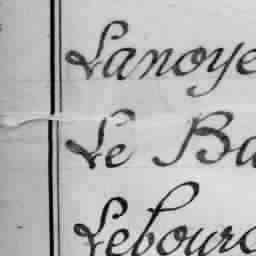 Lanoye
Le Ba
Lebourg